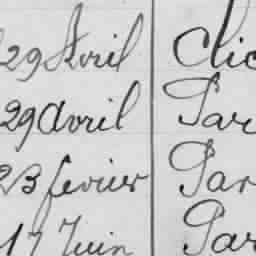 29 Avril Clic
29 Avril Par
23 fevrier Par
17 Juin Par